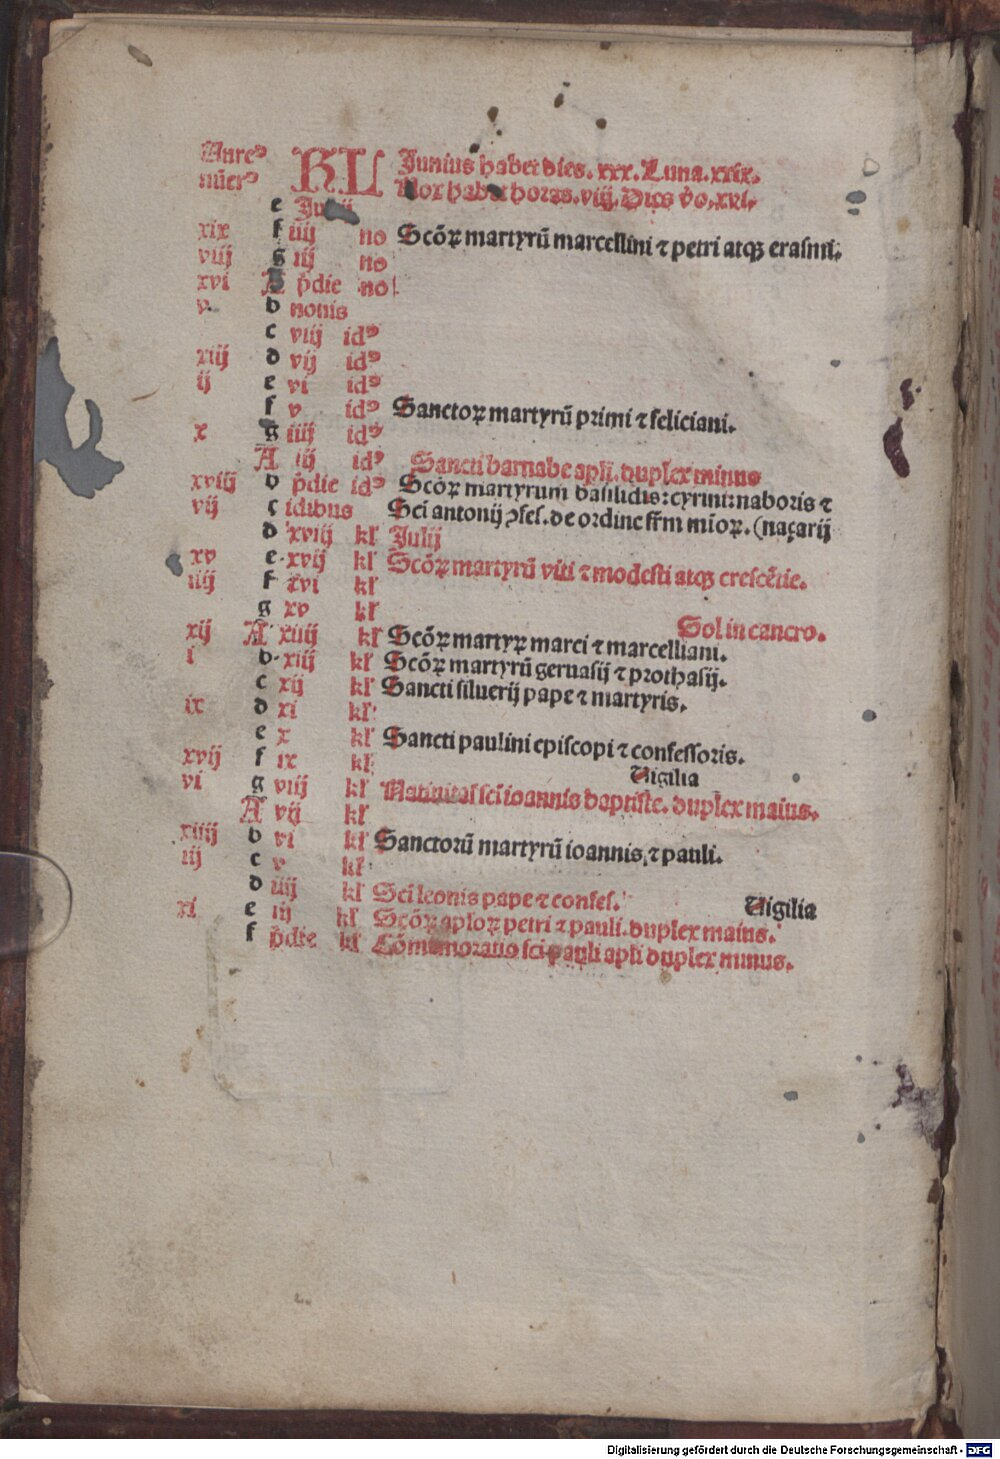 Aureꝰ KL Junius habet dies. xxx. Luna. xxix.
nũerꝰ Nox habet horas. viij. Dies ṽo. xvi.
e Junij
xix f iiij no Scõꝝ martyrũ marcellini ⁊ petri atqꝫ erasmi:
viij g iij no
xvi A p̃die no
v b nonis
c viij idꝰ
xiij d vij idꝰ
ij e vi idꝰ
f v idꝰ Sanctoꝝ martyrũ primi ⁊ feliciani.
x g iiij idꝰ
A iij idꝰ Sancti barnabe apli. duplex minus
xviij b p̃die idꝰ Scõꝝ martyrum basilidis: cyrini: naboris ⁊
vij c idibus Sci antonij ꝯfes. de ordine frm mĩoꝝ. (naçarij
d xviij kl' Julij
xv e xvij kl' Scõꝝ martyrũ viti ⁊ modesti atqꝫ crescẽtie.
iiij f xvi kl'
g xv kl' Sol in cancro.
xij A xiiij kl' Scõꝝ martyꝝ marci ⁊ marcelliani.
i b xiij kl' Scõꝝ martyrũ geruasij ⁊ prothasij.
c xij kl' Sancti siluerij pape ⁊ martyris.
ix d xi kl'
e x kl' Sancti paulini episcopi ⁊ confessoris.
xvij f ix kl' Vigilia
vi g viij kl' Natiuitas sci ioannis baptiste. duplex maius.
A vij kl'
xiiij b vi kl' Sanctorũ martyrũ ioannis ⁊ pauli.
iij c v kl'
d iiij kl' Sci leonis pape ⁊ confes. Vigilia
xi e iij kl' Scõꝝ aploꝝ petri ⁊ pauli. duplex maius.
f p̃die kl' Cõmemoratio sci pauli apli duplex minus.
Digitalisierung gefördert durch die Deutsche Forschungsgemeinschaft - DFG